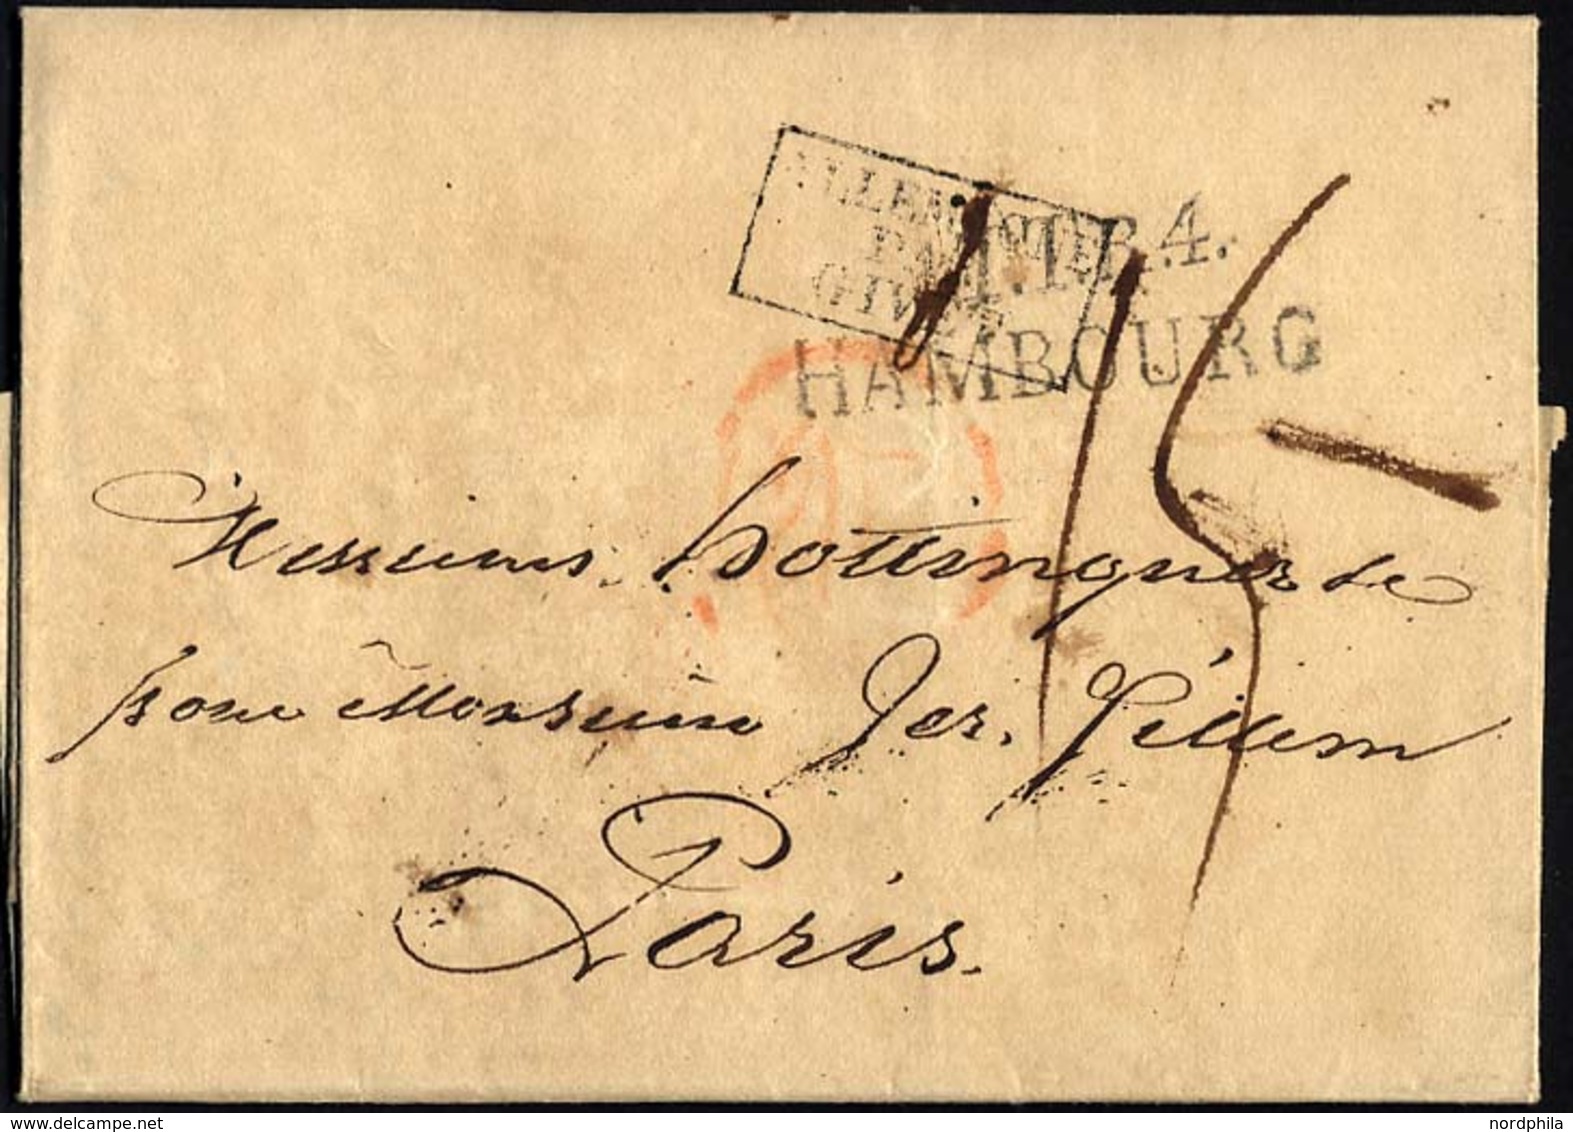 ALLEMAGNE
PAR
GIVET
T.T.R.4.
HAMBOURG
15
Messieurs Hottinguer & Co
pour Monsieur Jer. Sillem
Paris.
nordphila